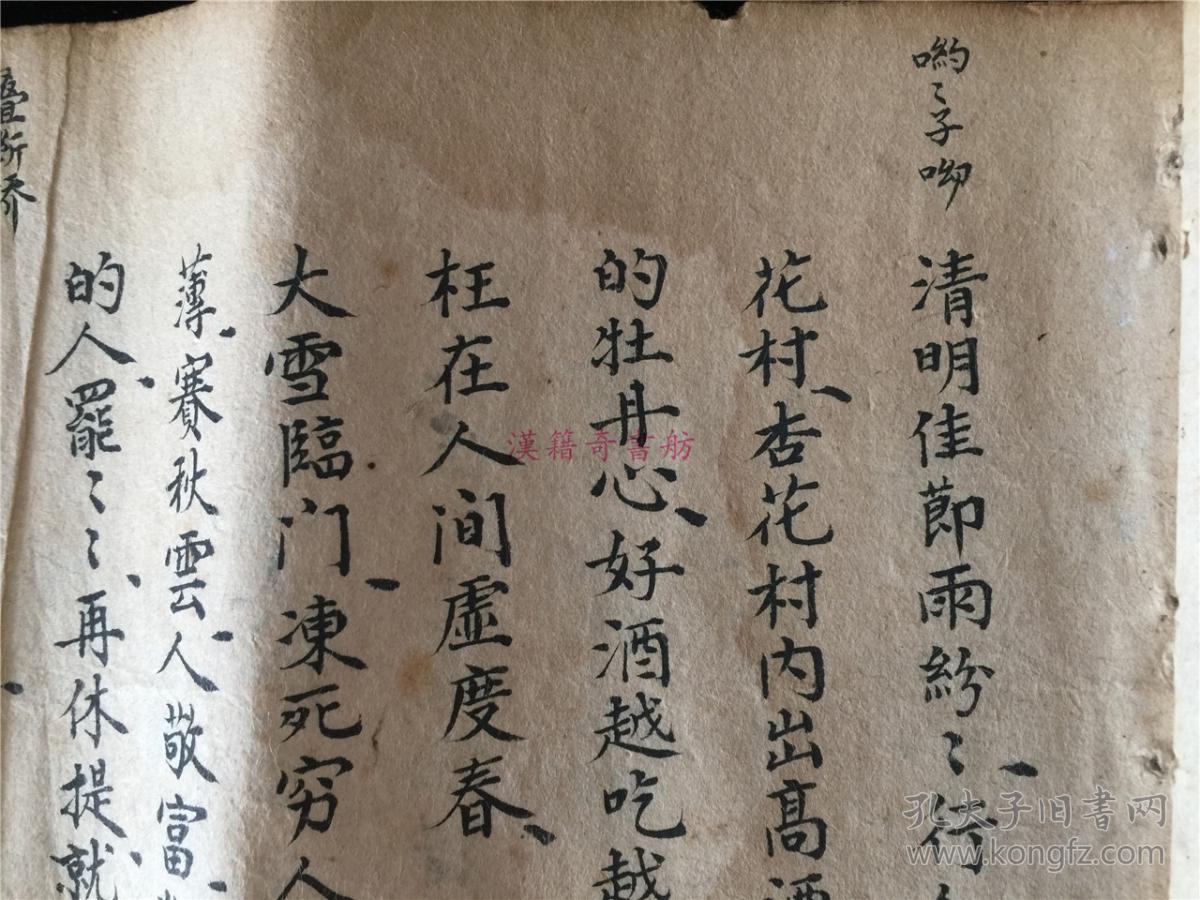 喲〻子呦
清明佳節雨紛〻、行
花村、杏花村内出高酒
的牡丹心、好酒越吃越
枉在人间虛度春、
大雪臨门、凍死穷人
薄、賽秋雲、人敬富、
的人、罷〻〻、再休提、就
漢籍奇書舫
孔夫子旧書网
www.kongfz.com